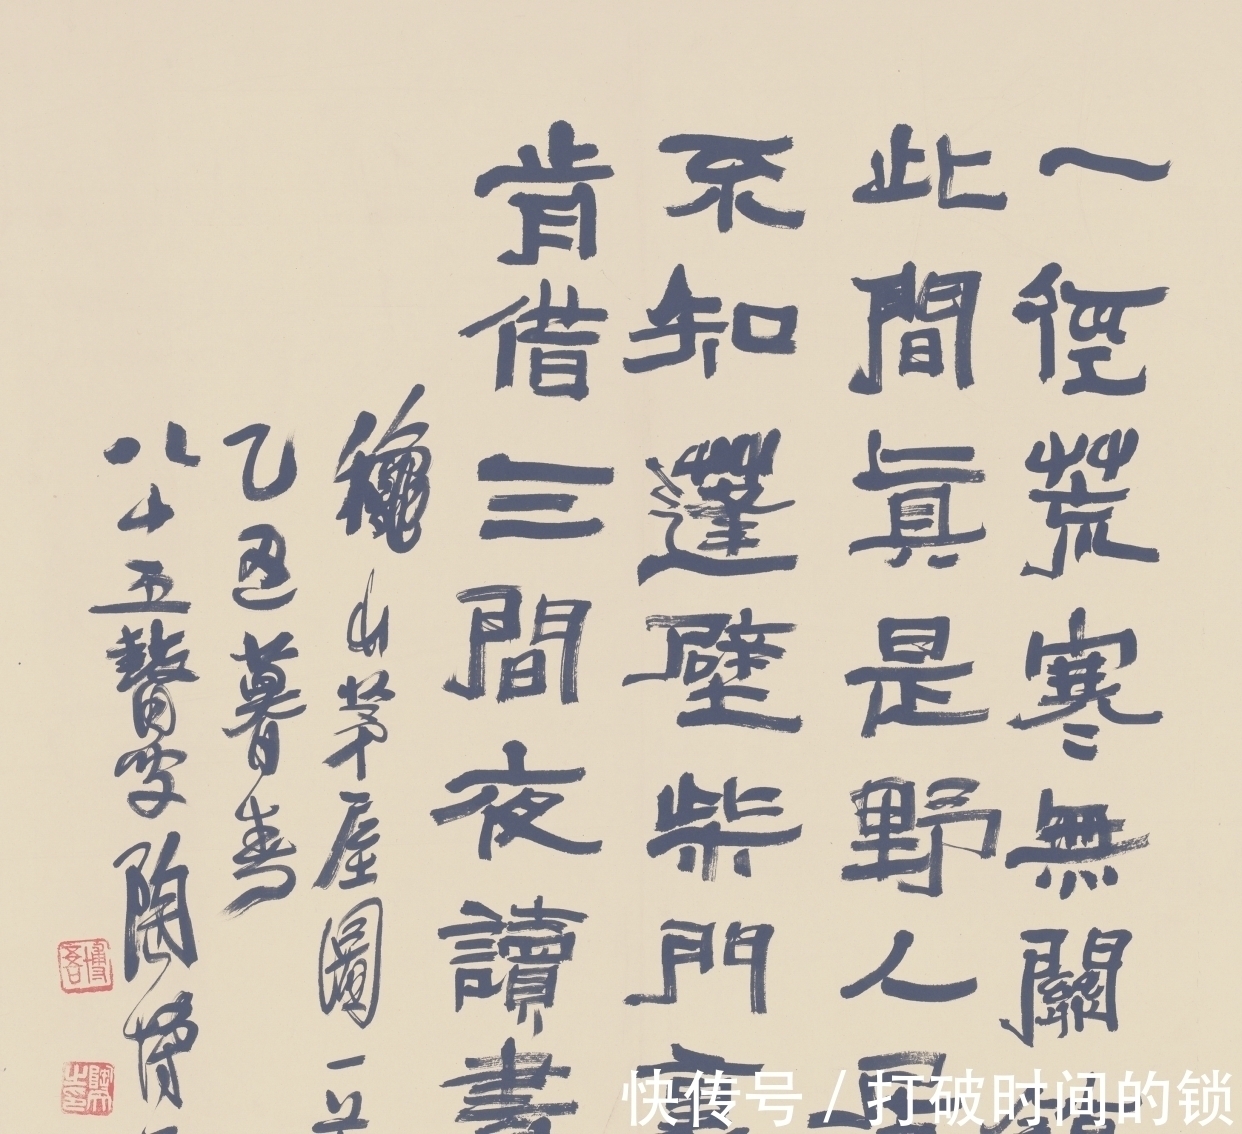 一徑荒寒無關
此間眞是野人居
不知蓬壁柴門裏
肯借三間夜讀書
穐山茅屋圖一
乙丑暮春
八十五瞽叟陶博
博吾
陶
快传号 / 打破时间的锁